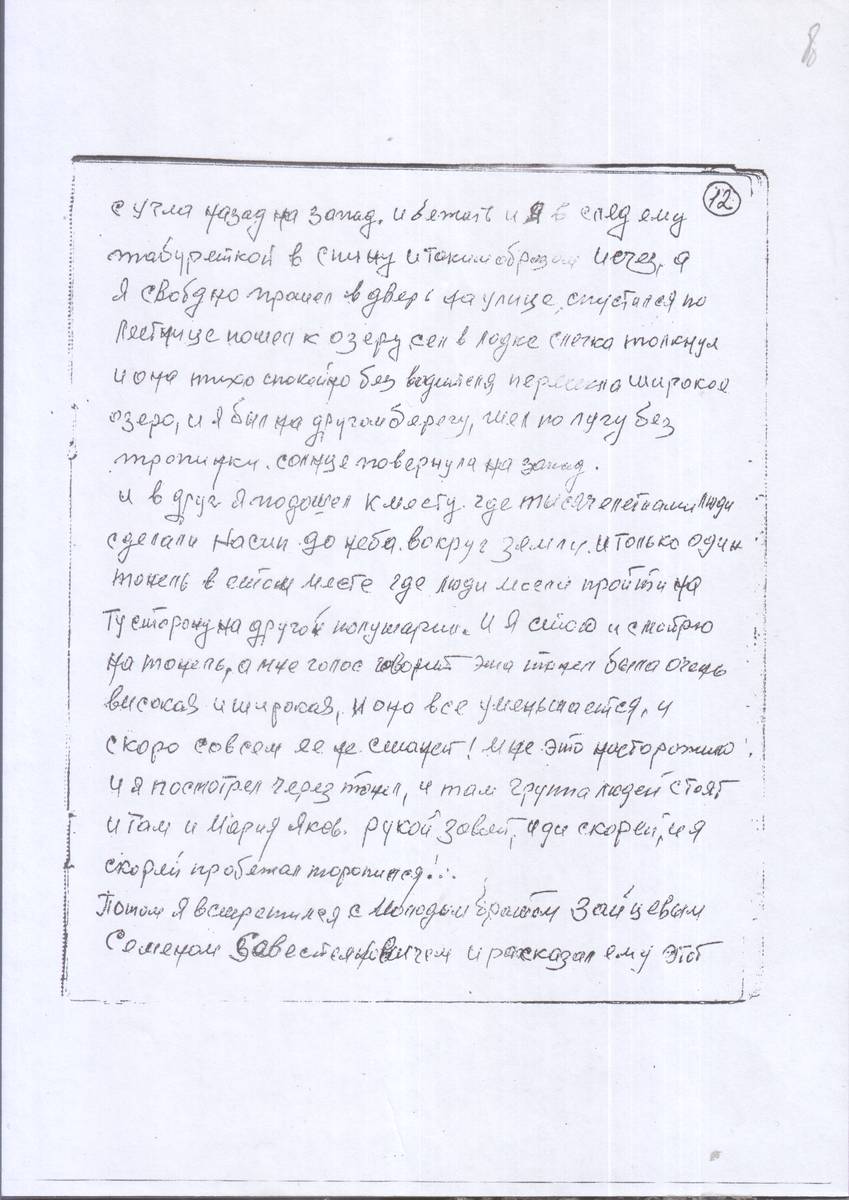 8
12
с угла назад на запад. и бежать и я в след ему
табуреткой в спину и таким образом исчез, а
я свободно прошел в дверь на улице, спустился по
лестнице пошел к озеру, сел в лодке слегка толкнул
и она тихо спокойно без водителя на широкое
озеро, и я был на другом берегу, шел по лугу без
тропинки. солнце повернула на запад.
и в друг я подошел к месту. где тисячелетиами люди
сделали насип до неба. вокруг земли. и только один
тонель в етом месте где люди могли пройти на
ту сторону на другой полушарии. И я стою и смотрю
на тонель, а мне голос говорит эта тонел была очень
високая и широкая, и оно все уменьшается, и
скоро совсем ее не станет! мне это насторожило!
и я посмотрел через тонел, и там группа людей стоят
и там и Мария Яков. рукой зовет, иди скорей, и я
скорей пробежал торопился!..
Потом я встретился с молодым братом Зайцевым
Семеном Савестеяновичем и расказал ему этот